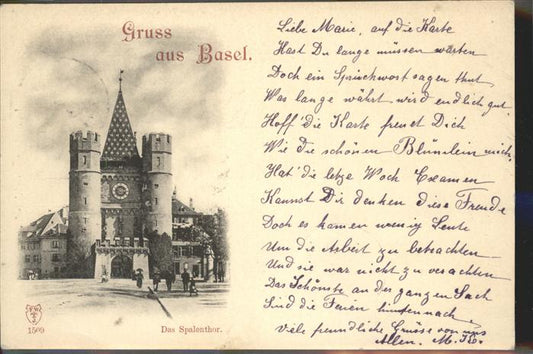 Gruss
aus Basel.
Liebe Marie, auf die Karte
Hast Du lange müssen warten
Doch ein Sprickwort sagen thut
Was lange währt wird endlich gut.
Hoff' die Karte freut Dich
Wie die schönen Blümlein mich,
Hat' die letze Woch Examen
Kannst Dir denken diese Freude
Doch es kamen wenig Leute
Um die Arbeit zu betrachten
Und sie war nicht zu verachten
Das Schönste an der ganzen Sach
Sind die Ferien hintennach
Viele freundliche Grüsse von uns
Allen. M. K.
1509
Das Spalenthor.